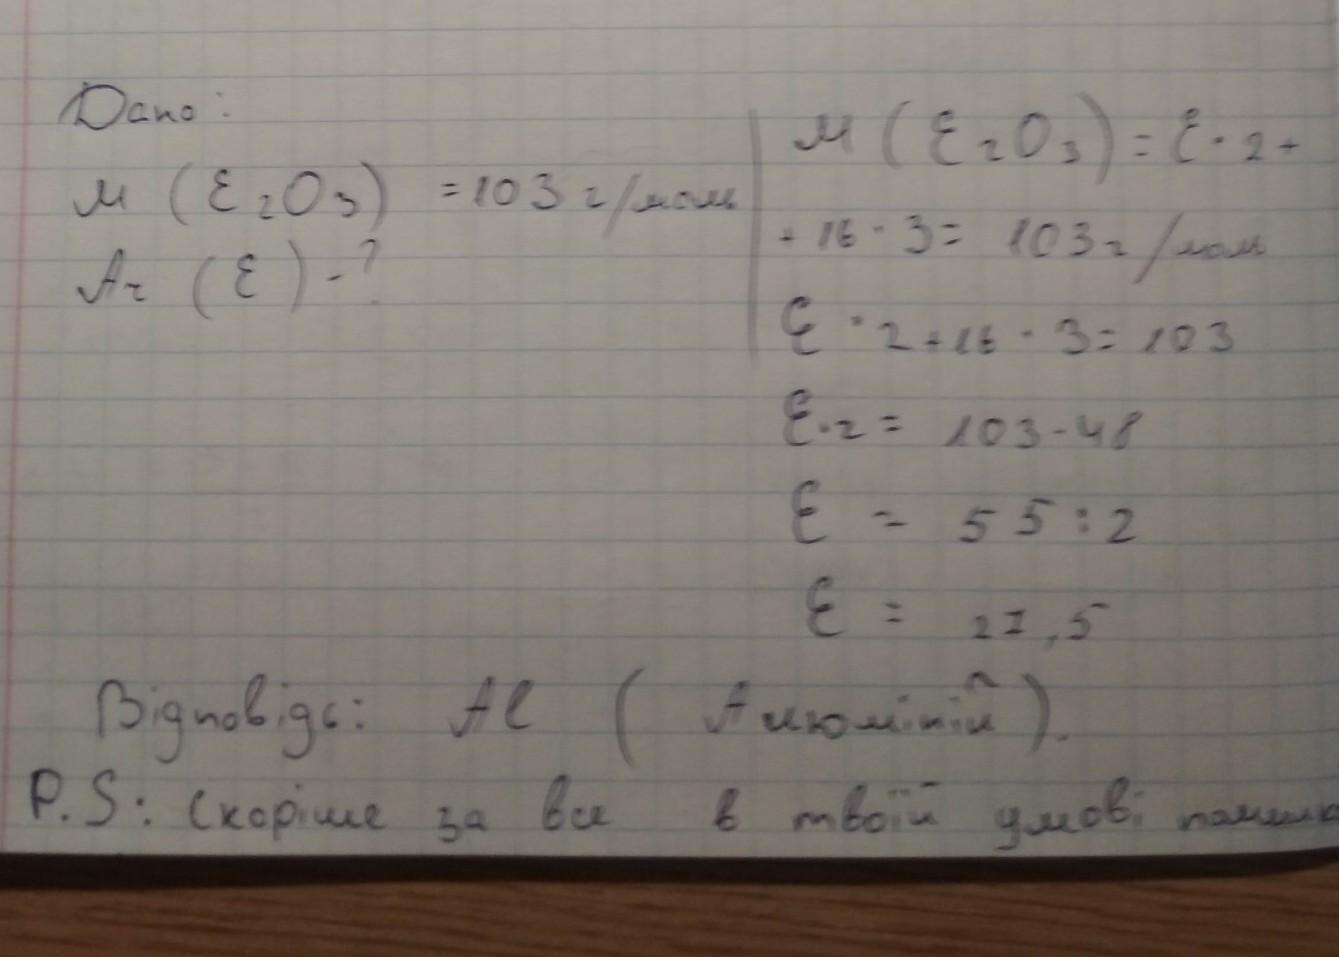 Дано:
M (E₂O₃) = 103 г/моль
Ar (E) - ?
M (E₂O₃) = E · 2 +
+ 16 · 3 = 103 г/моль
E · 2 + 16 · 3 = 103
E · 2 = 103 - 48
E = 55 : 2
E = 27,5
Відповідь: Al ( Алюміній ).
P.S: Скоріше за все в твоїй умові помилка